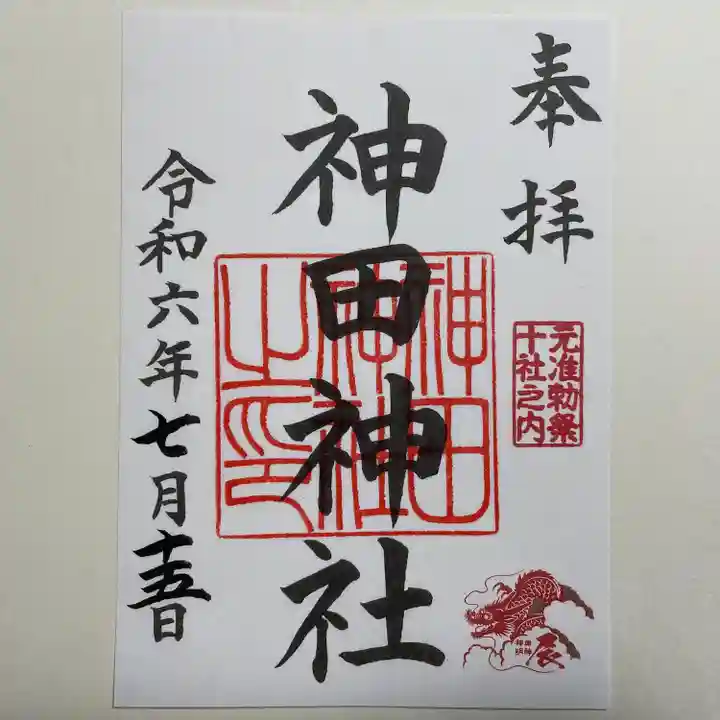 奉拝
元准勅祭
十社之内
神田神社
神田
神社
之印
令和六年七月十五日
辰
神田
明神